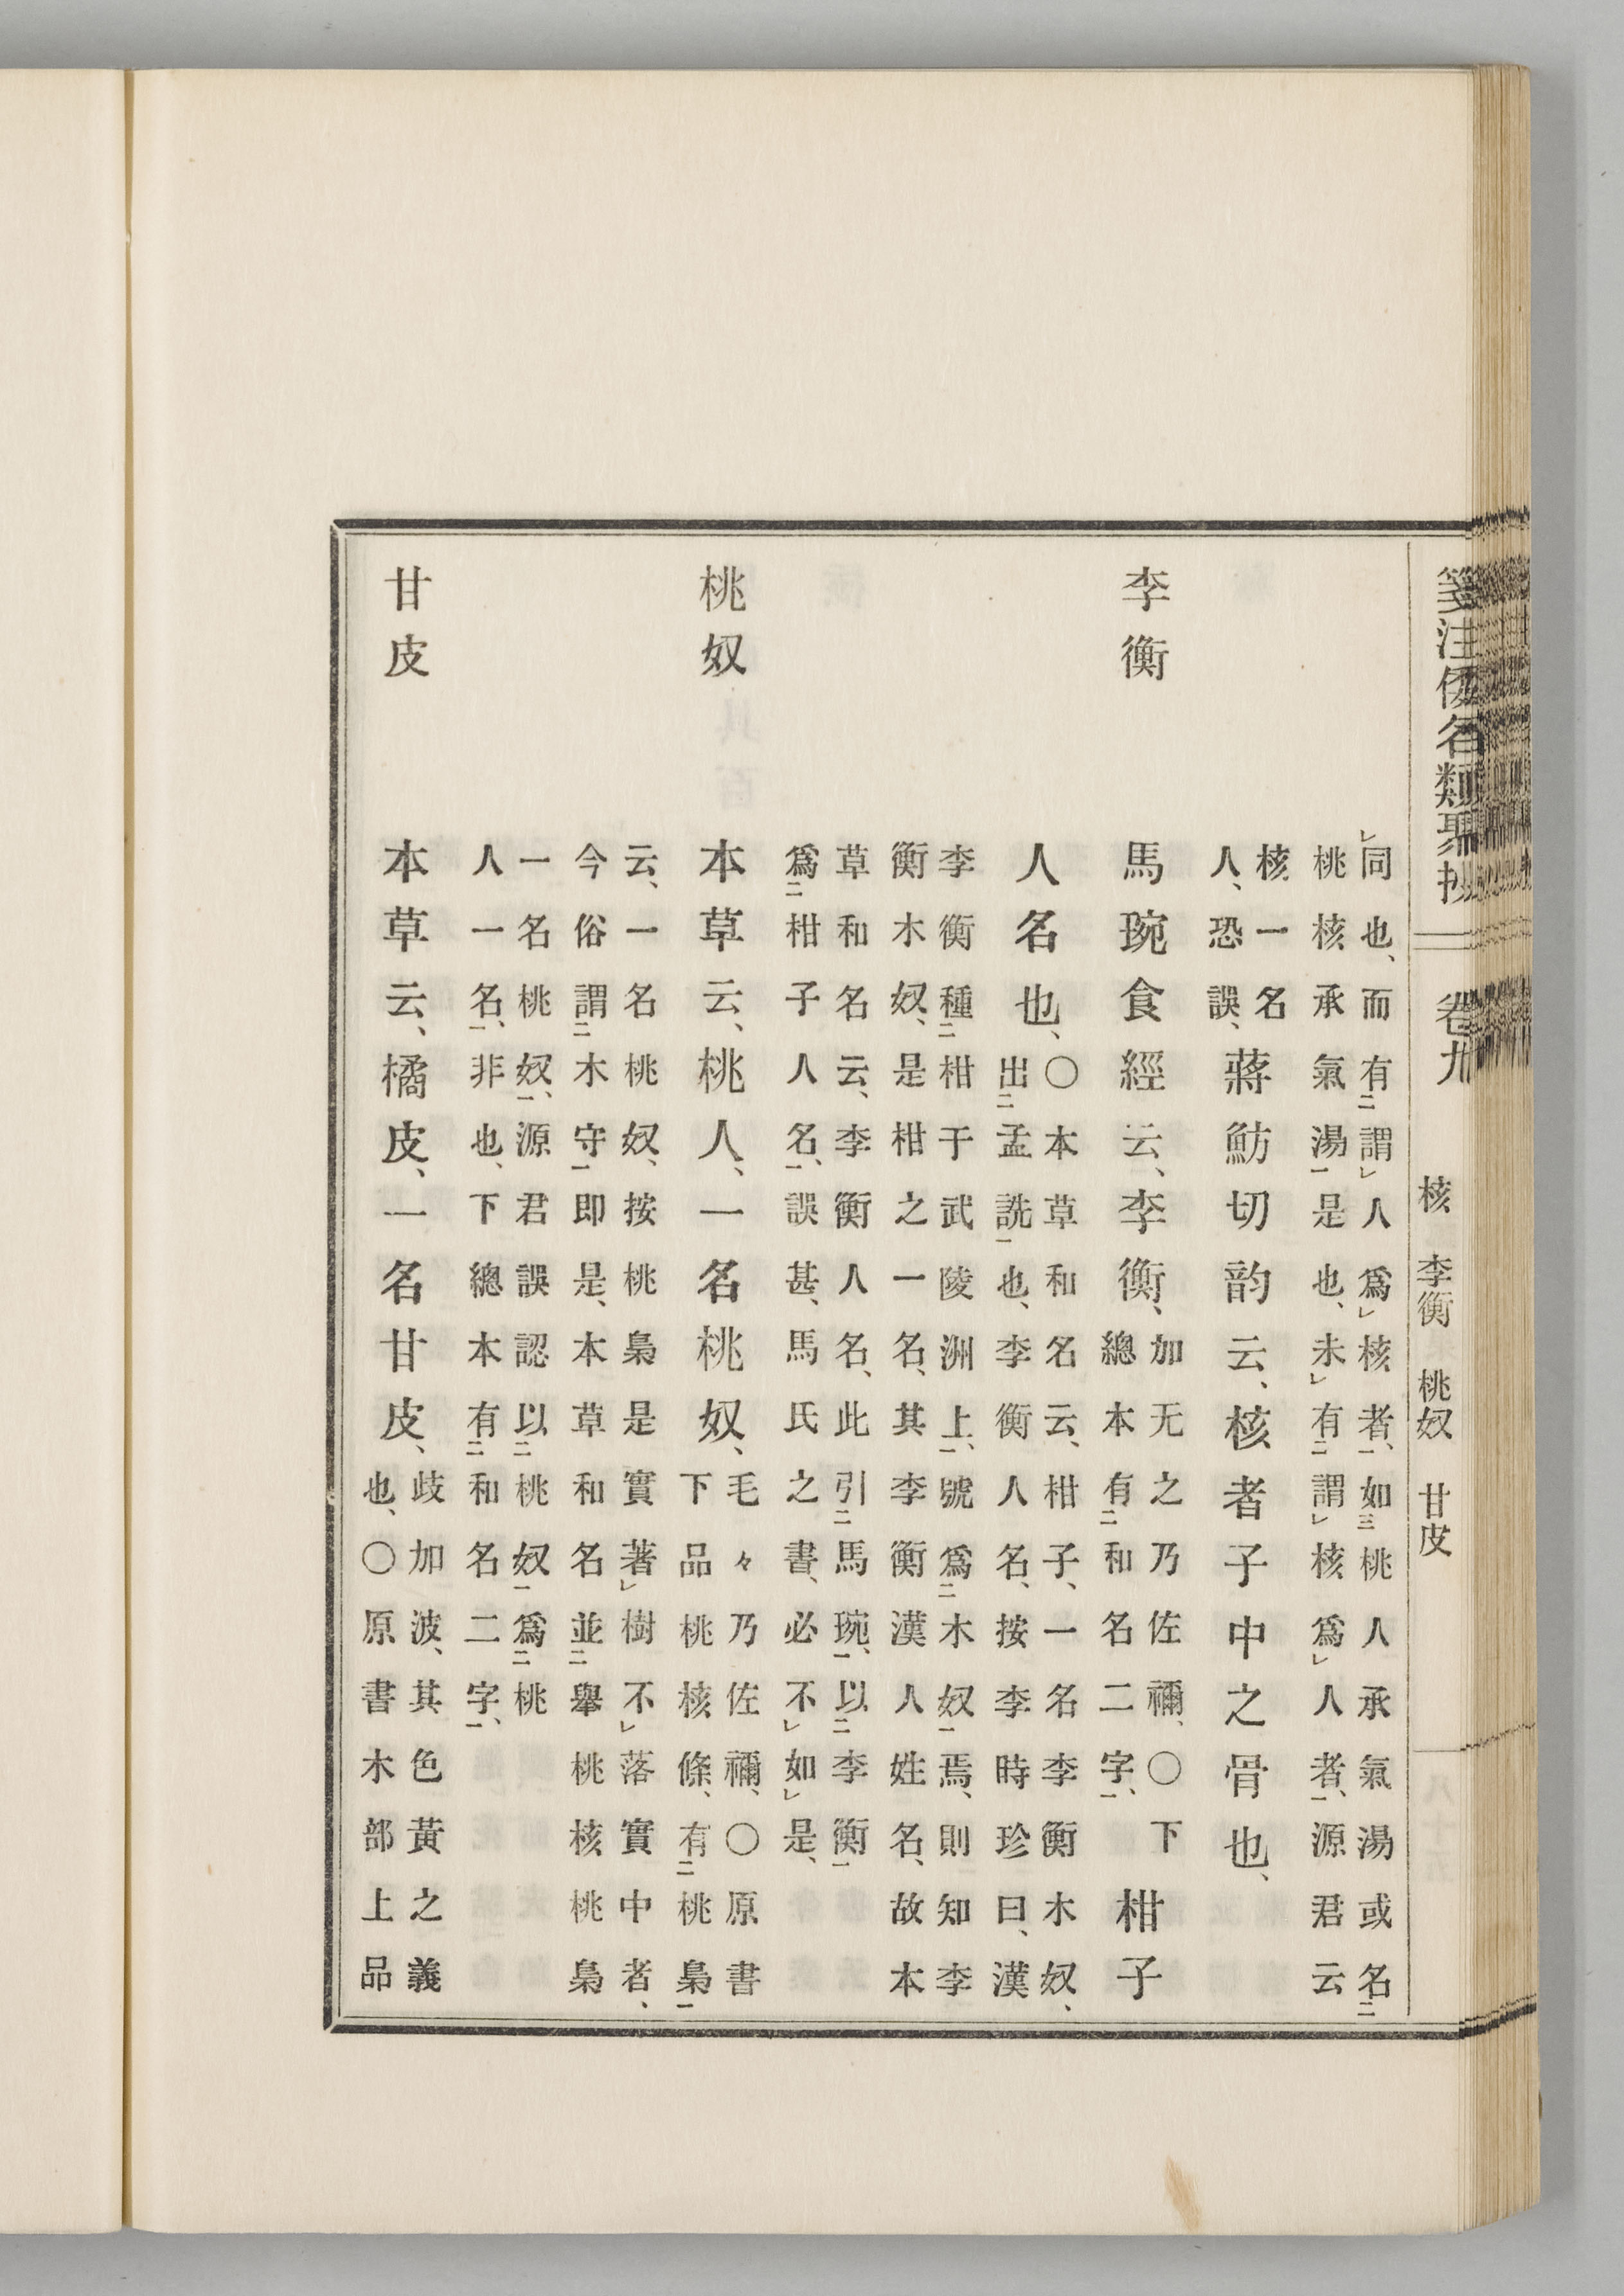 箋注倭名類聚抄 卷九 核 李衡 桃奴 甘皮
㆑同也、而有㆓謂㆑人爲㆑核者㆒、如㆔桃人承氣湯或名㆓
桃核承氣湯㆒是也、未㆑有㆓謂㆑核爲㆑人者㆒、源君云
核一名
人、恐誤、蔣魴切韵云、核者子中之骨也、
李衡 馬琬食經云、李衡、加无之乃佐禰、〇下
總本有㆓和名二字㆒、柑子
人名也、〇本草和名云、柑子、一名李衡木奴、
出㆓孟詵㆒也、李衡人名、按李時珍曰、漢
李衡種㆓柑于武陵洲上㆒、號爲㆓木奴㆒焉、則知李
衡木奴、是柑之一名、其李衡漢人姓名、故本
草和名云、李衡人名、此引㆓馬琬㆒、以㆓李衡㆒
爲㆓柑子人名㆒、誤甚、馬氏之書、必不㆑如㆑是、
桃奴 本草云、桃人、一名桃奴、毛々乃佐禰、〇原書
下品桃核條、有㆓桃梟㆒
云、一名桃奴、按桃梟是實著㆑樹不㆑落實中者、
今俗謂㆓木守㆒即是、本草和名並㆓擧桃核桃梟
一名桃奴㆒、源君誤認以㆓桃奴㆒爲㆓桃
人一名㆒、非也、下總本有㆓和名二字㆒、
甘皮 本草云、橘皮、一名甘皮、歧加波、其色黃之義
也、〇原書木部上品